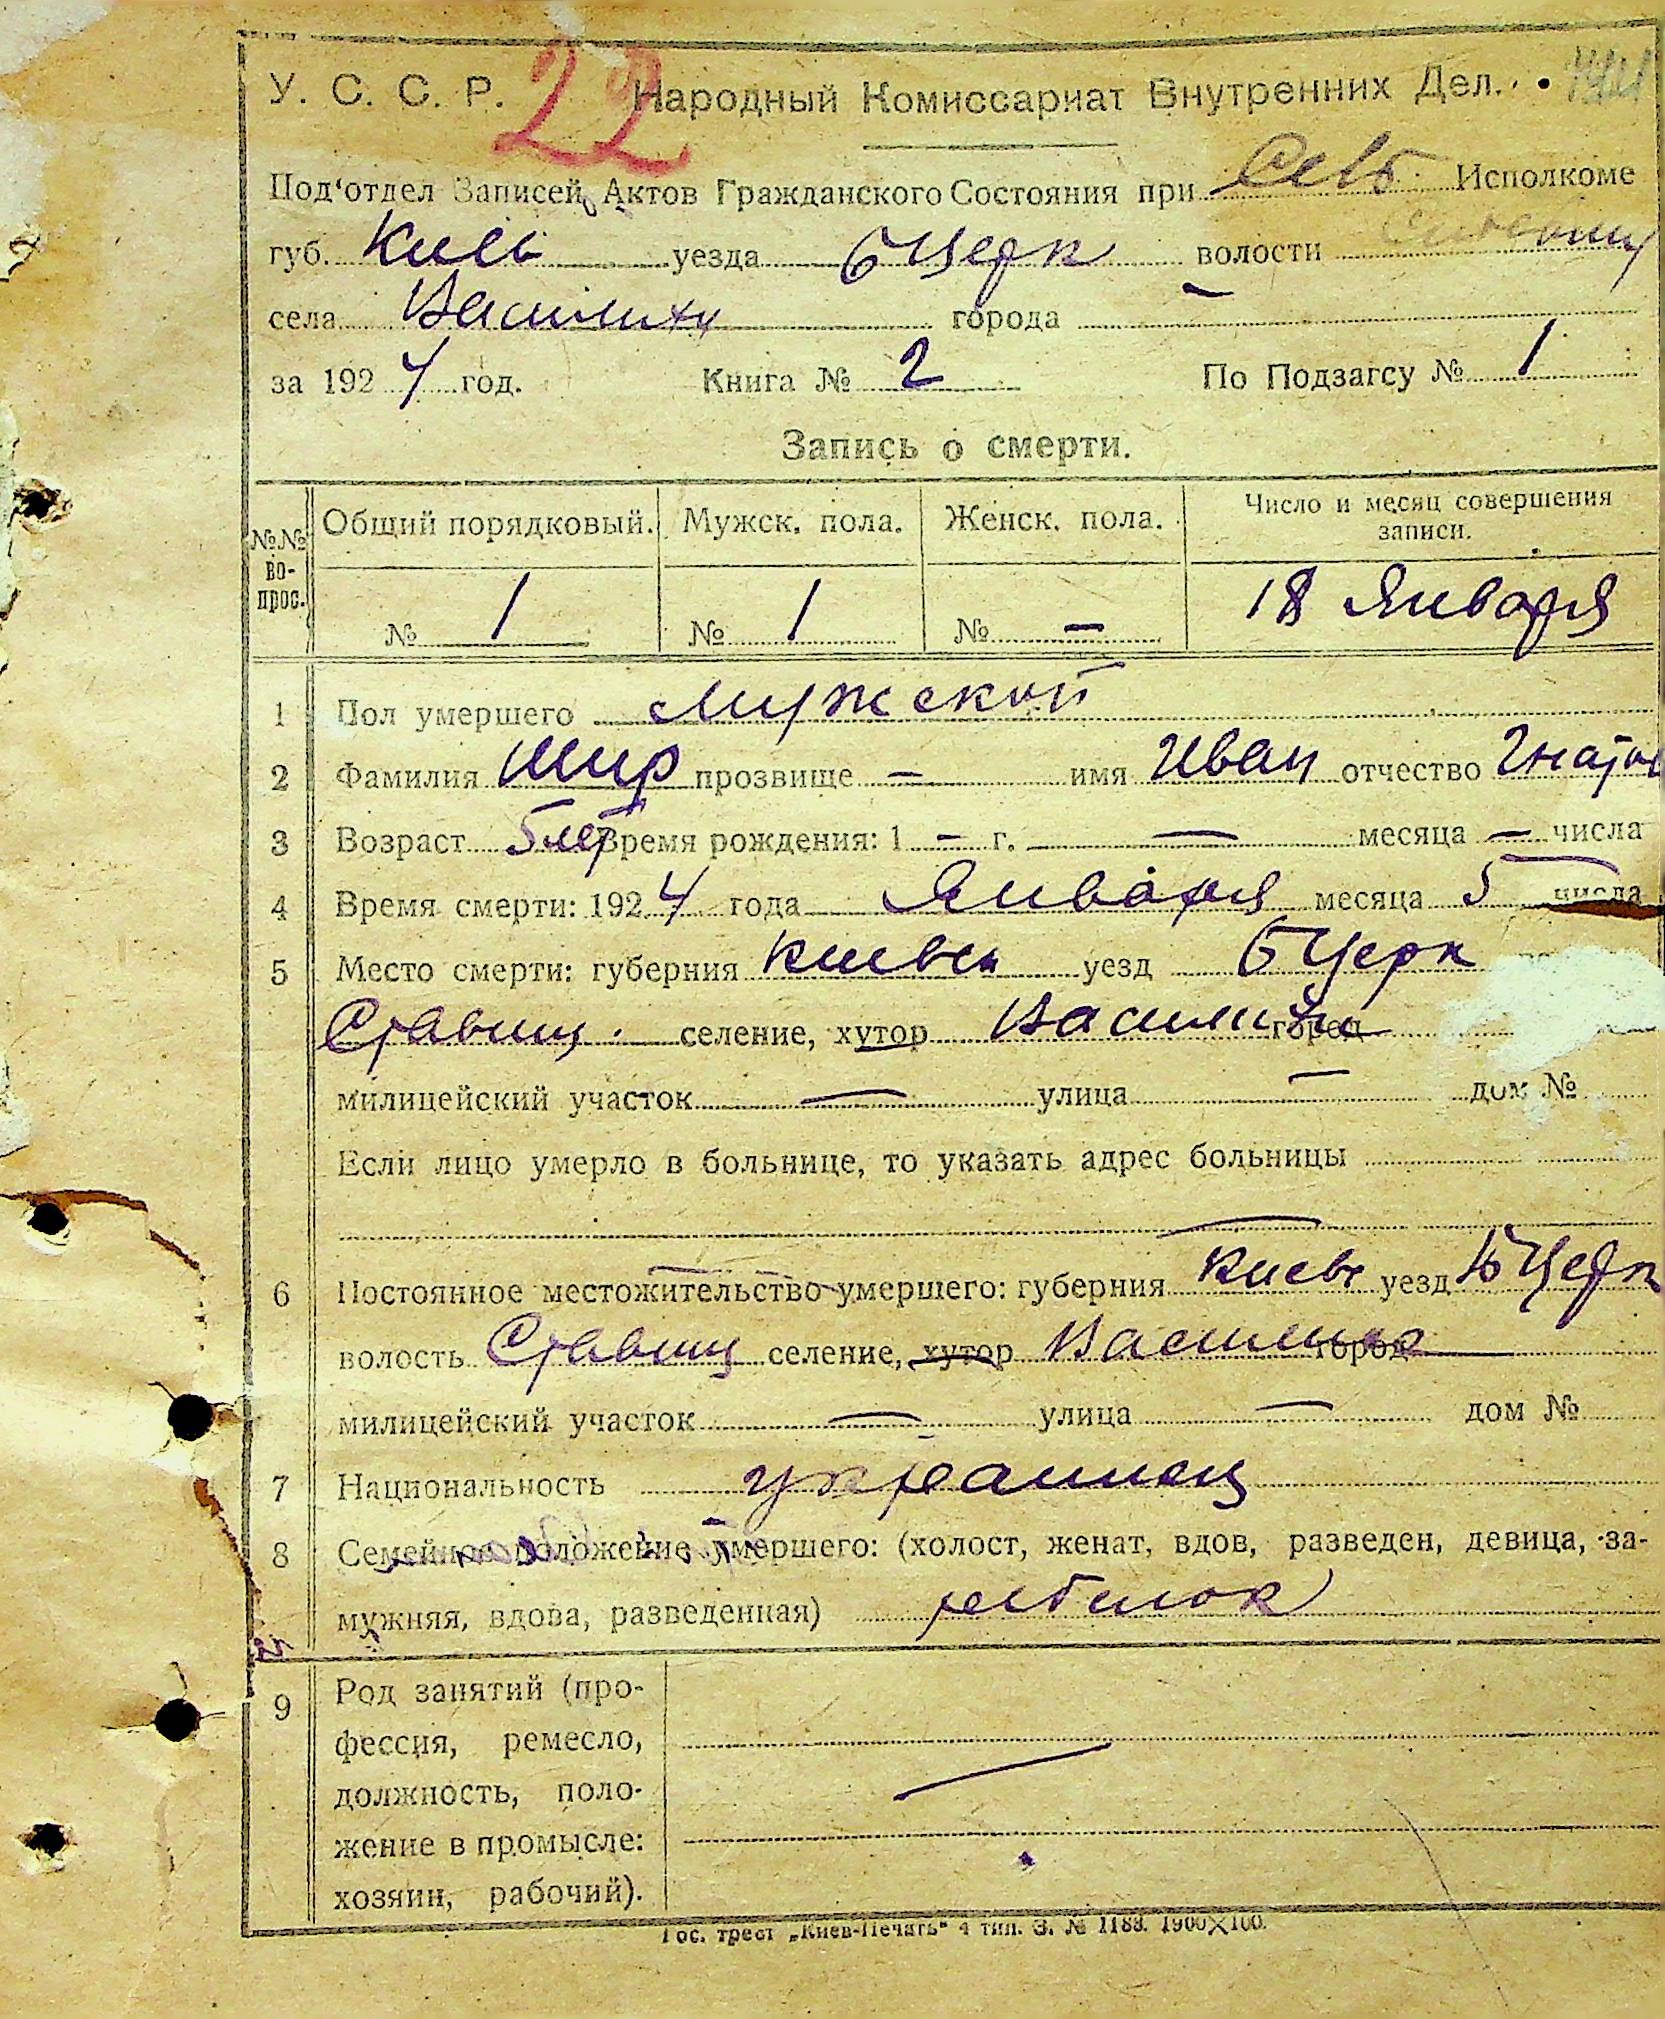 22
У. С. С. Р. Народный Комиссариат Внутренних Дел.
Под'отдел Записей Актов Гражданского Состояния при Исполкоме
губ. Киев уезда БЦерк волости
села города —
за 1924 год. Книга № 2 По Подзагсу № 1
Запись о смерти.
№№ во-прос. Общий порядковый. Мужск. пола. Женск. пола. Число и месяц совершения записи.
№ 1 № 1 № — 18 Января
1 Пол умершего Мужской
2 Фамилия Шир прозвище — имя Иван отчество
3 Возраст 5 лет Время рождения: 1 — г. — месяца — числа
4 Время смерти: 1924 года Января месяца 5 числа
5 Место смерти: губерния Киевск уезд БЦерк
Ставищ. селение, хутор город
милицейский участок — улица — дом №
Если лицо умерло в больнице, то указать адрес больницы
—
6 Постоянное местожительство умершего: губерния Киевс уезд БЦерк
волость Ставищ селение, хутор город
милицейский участок — улица — дом №
7 Национальность украинец
8 Семейное положение умершего: (холост, женат, вдов, разведен, девица, за-
мужняя, вдова, разведенная) ребенок
9 Род занятий (про-
фессия, ремесло,
должность, поло-
жение в промысле:
хозяин, рабочий). —
Гос. трест „Киев-Печать“ 4 тип. З. № 1188. 1900×100.